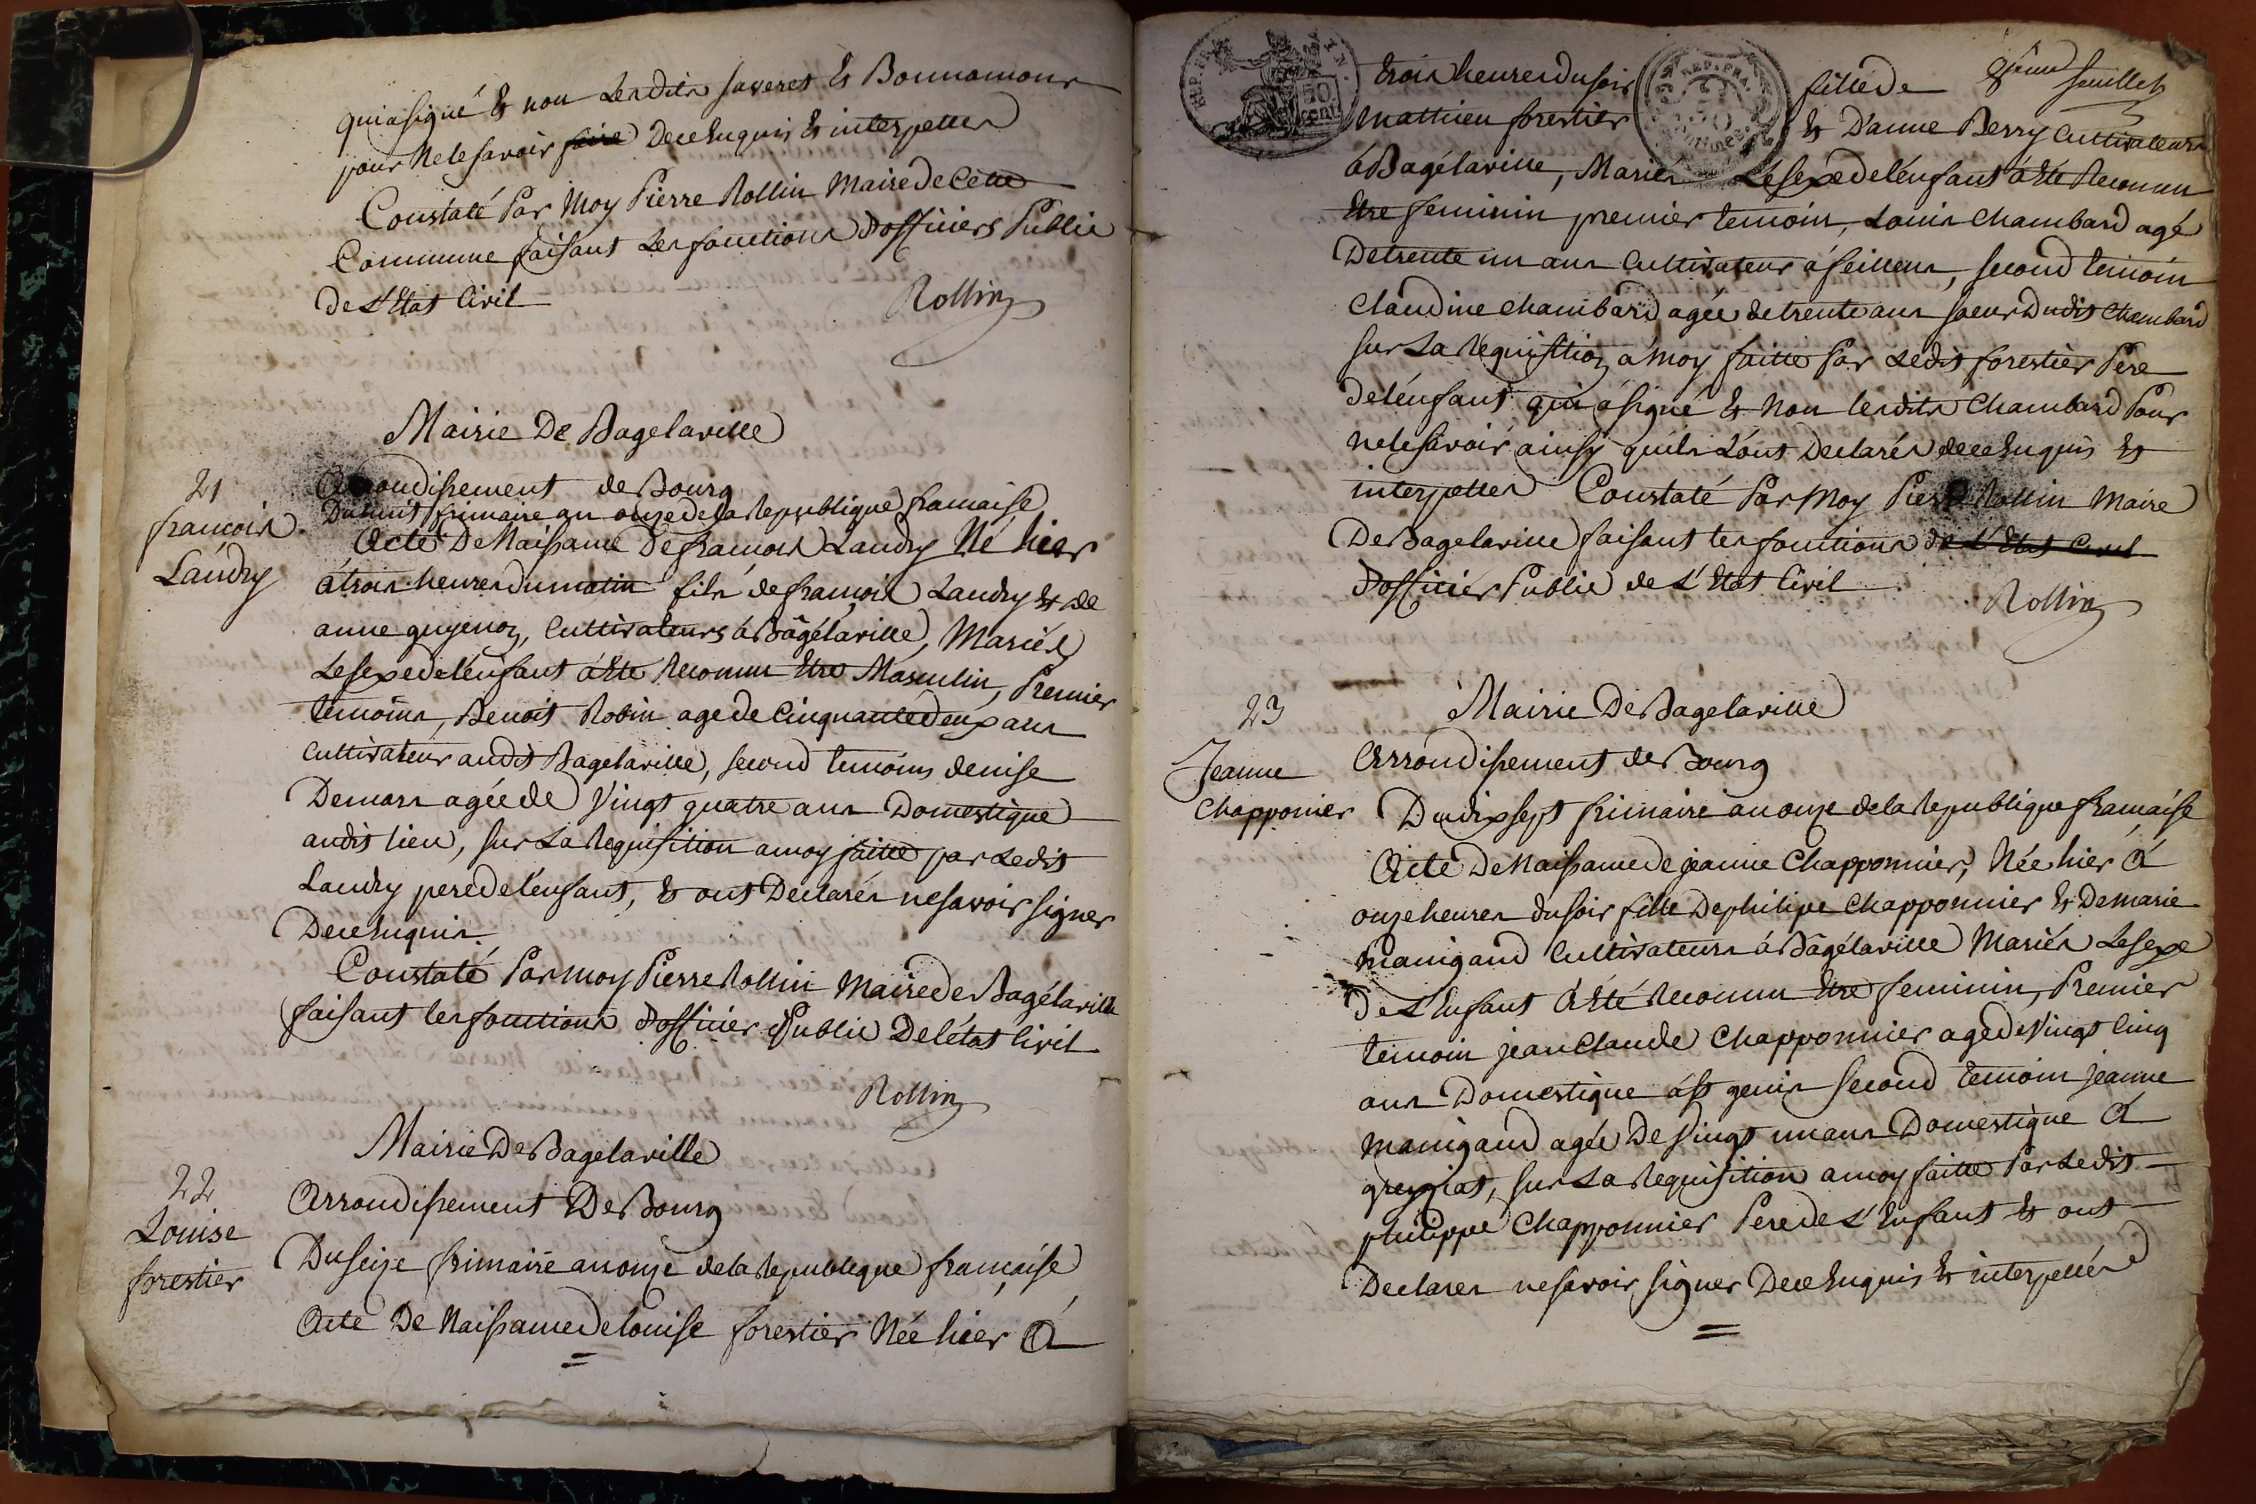 qui a signé & non Lesdits saveret & Bonnamour
pour Ne le savoir faire De ce Enquis & interpelles
Constaté Par Moy Pierre Rollin Maire de Cette
Commune faisant Les fonctions D'officiers Public
de L'Etat Civil
Rollin
Mairie De Bagelaville
21
Arrondissement de Bourg
françois
Landry
Du huit frimaire an onze de la Republique francaise
Acte De Naissance De francois Landry Né hier
á trois heures du matin fils de françois Landry & de
anne guyenon, Cultivateurs á Bâgélaville, Mariés
Le sexe de l'énfant á Eté Reconnu Etre Masculin, Premier
témoins, Benoit Robin age de Cinquante deux ans
Cultivateur audit Bagelaville, second temoins denise
Demars agée de Vingt quatre ans Domestique
audit lieu, sur La Requisition a moy faitte par Ledit
Landry pere de l'énfant, & ont Declarés ne savoir signer
De ce Enquis.
Constaté Par moy Pierre Rollin Maire de Bagélaville
faisant les fonctions d'officier Public De l'état Civil
Rollin
Mairie De Bagelaville
22
Louise
forestier
Arrondissement De Bourg
Du seize frimaire an onze de la Republique française
Acte De Naissance de louise forestier Née hier á
8eme feuillet
REP. FRA.
50 cent
REP. FRA.
trois heures du soir fille de
mathieu forestier & D'anne Berry Cultivateurs
á Bagélaville, Mariés Le sexe de l'énfant á Eté Reconnu
Etre feminin premier temoin, Louis Chambard agé
De trente un ans Cultivateur á feillens, second temoin
Claudine Chambard agée de trente ans soeur Dudit Chambard
sur La Requisition a moy faitte Par Ledit forestier Pere
de l'énfant qui á signé & Non lesdits Chambard Pour
ne le savoir ainsy qu'ils L'ont Declarés de ce Enquis &
interpelles Constaté Par Moy Pierre Rollin Maire
De Bagelaville faisant les fonctions de L'Etat Civil
d'officier Public de L'Etat Civil
Rollin
23
Mairie De Bagelaville
Jeanne
Chapponier
Arrondissement de Bourg
Du dix sept frimaire an onze de la Republique francaise
Acte De Naissance de jeanne Chapponnier, Née hier á
onze heures du soir fille De philipe Chapponnier & De marie
manigand Cultivateurs á Bâgélaville Mariés Le sexe
De L'Enfant á Eté Reconnu Etre feminin, Premier
temoin jean Claude Chapponnier agé de Vingt Cinq
ans Domestique á st genis second temoin jeanne
manigand agée De Vingt un ans Domestique á
greziat, sur La Requisition a moy faitte Par Ledit
philippe Chapponnier Pere de L'Enfant & ont
Declares ne savoir signer De ce Enquis & interpellés